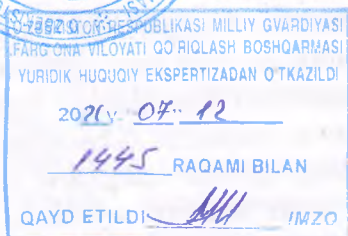 O‘ZBEKISTON RESPUBLIKASI MILLIY GVARDIYASI
FARG‘ONA VILOYATI QO‘RIQLASH BOSHQARMASI
YURIDIK HUQUQIY EKSPERTIZADAN O‘TKAZILDI
2021 y. 07.. 12
1445 RAQAMI BILAN
QAYD ETILDI IMZO